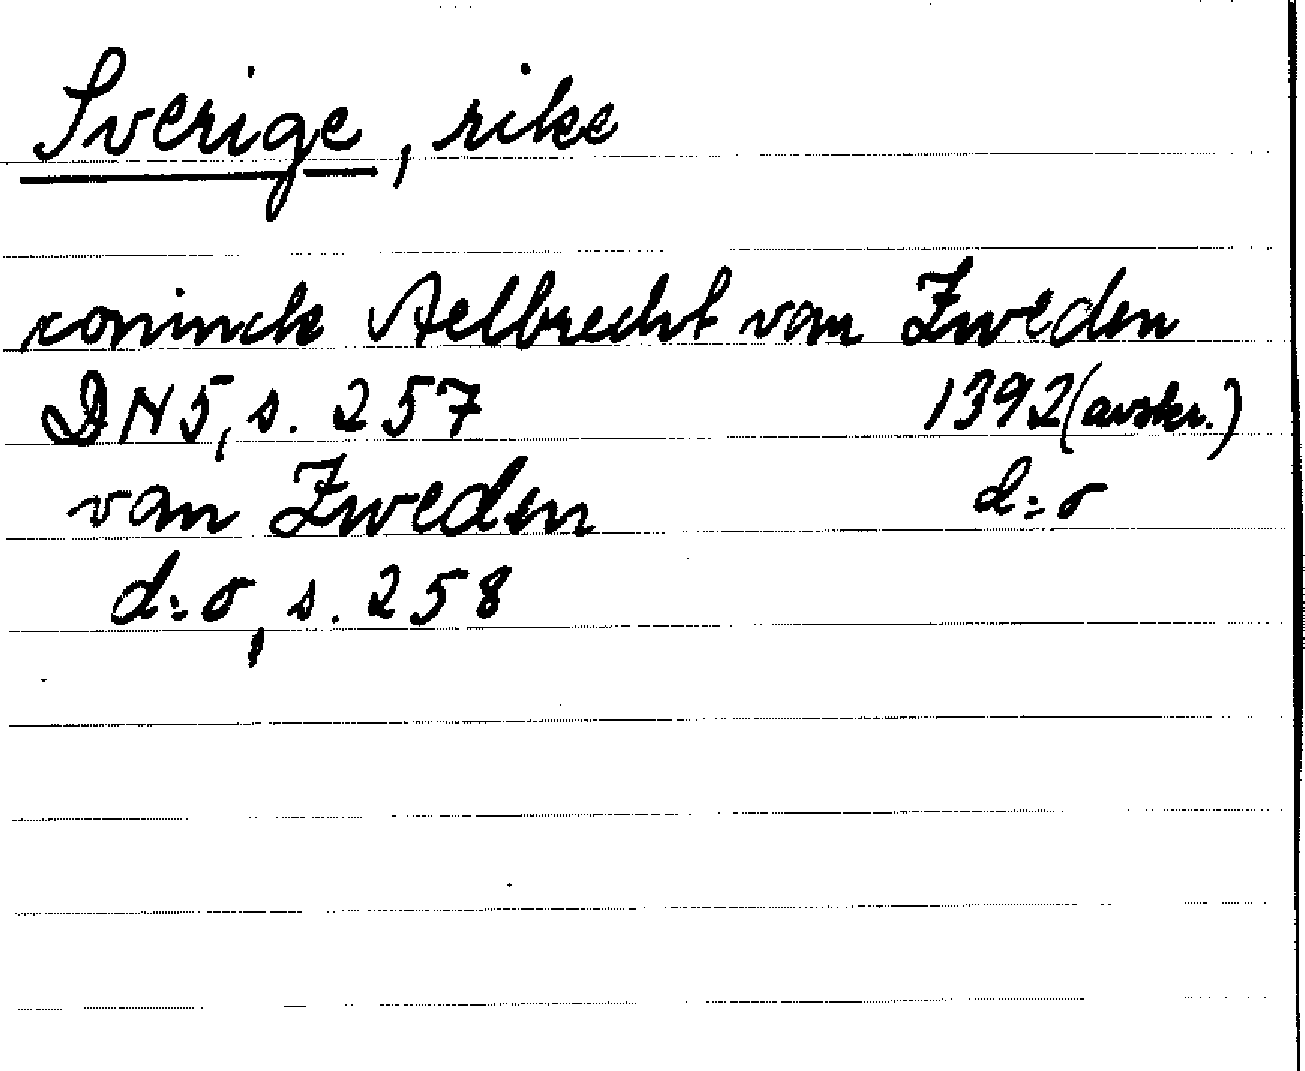 Sverige, rike
coninck Aelbrecht van Zweden
DN 5, s. 257 1392 (avskr.)
van Zweden d:o
d:o, s. 258